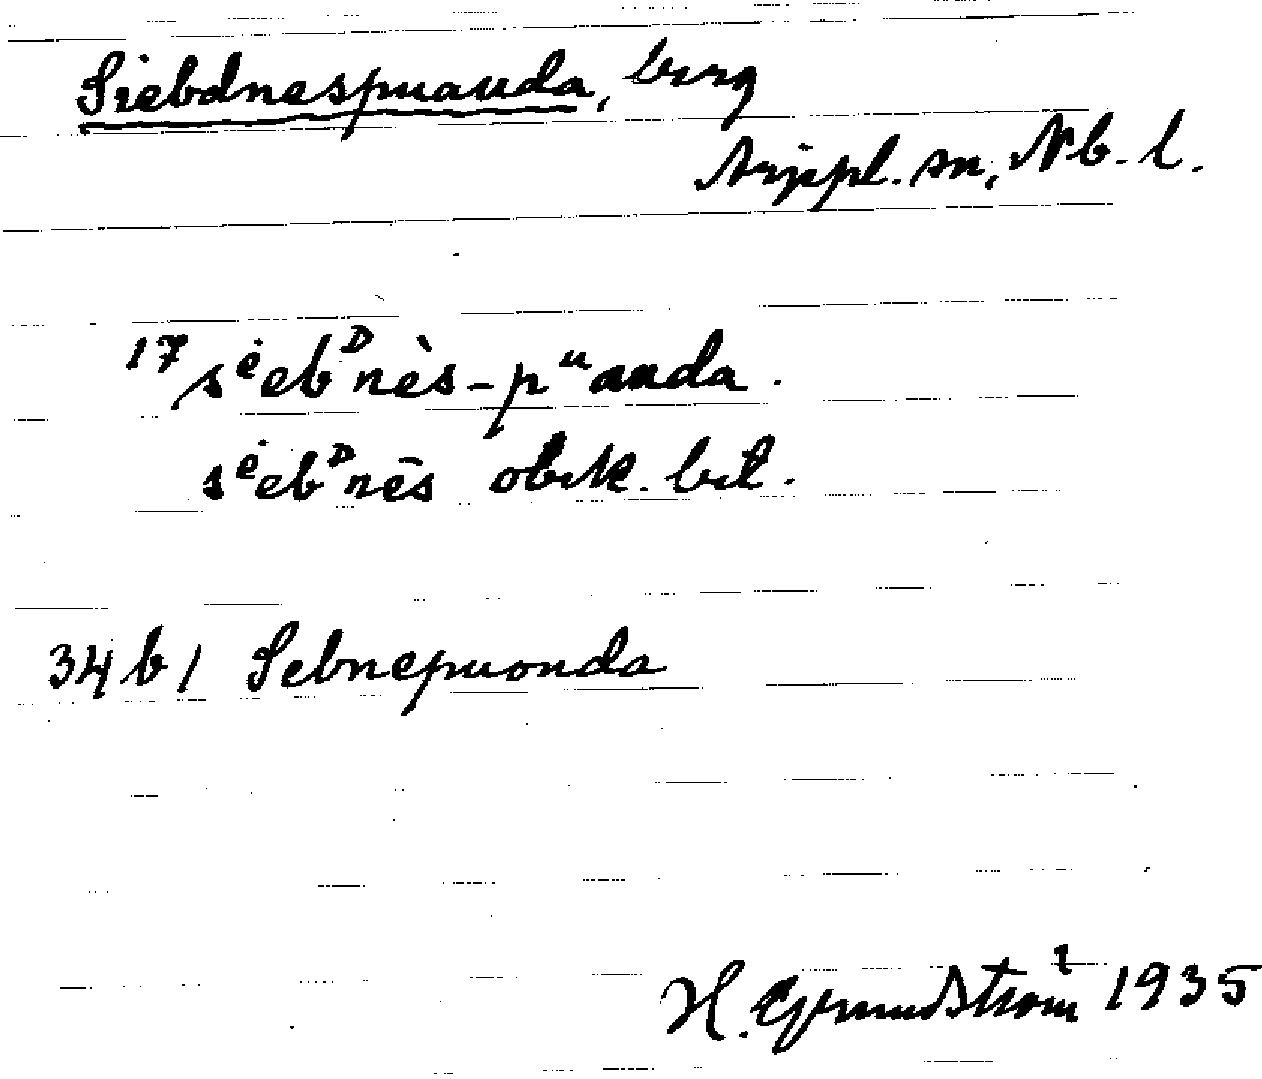 Siebdnespuauda, berg
Arjepl. sn, Nb. l.
17/ sėebᴰnès-pᵘauda.
sėebᴰnēs obek. bet.
34 b/ Sebnepuonda
H. Grundström 1935